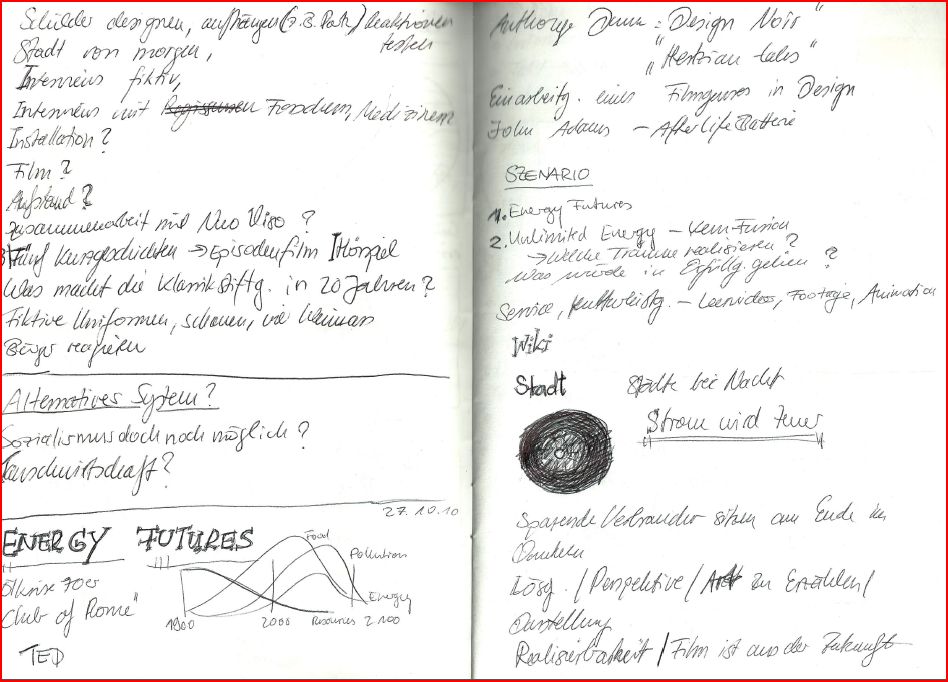 Schilder designen, aufhängen (z.B. Park) Reaktionen
testen
Stadt von morgen,
Interviews fiktiv,
Interviews mit Forschern, Medizinern
Installation?
Film?
Aufstand?
Zusammenarbeit mit Neo Viso?
Fünf Kurzgeschichten → Episodenfilm / Hörspiel
Was macht die Klassikstiftg. in 20 Jahren?
Fiktive Uniformen, schauen, wie
Bürger reagieren
Alternatives System?
Sozialismus doch noch möglich?
Tauschwirtschaft?
27.10.10
ENERGY FUTURES
Food
Pollution
Energy
1900 2000 Resources 2100
Ölkrise 70er
Club of Rome"
TED
Anthony Dunn: "Design Noir"
"Hertzian tales"
Einarbeitg. eines Filmgenres in Design
John Adams – AfterLife Batterie
SZENARIO
1. Energy Futures
2. Unlimited Energy – Kernfusion
→ Welche Träume realisieren?
Was würde in Erfüllg. gehen?
Service, – Lernvideos, Footage, Animation
Wiki
Stadt
Städte bei Nacht
Strom wird teuer
Sparende Verbraucher sitzen am Ende im
Dunkeln
Lösg. / Perspektive / Art zu Erzählen /
Darstellung
Realisierbarkeit / Film ist aus der Zukunft